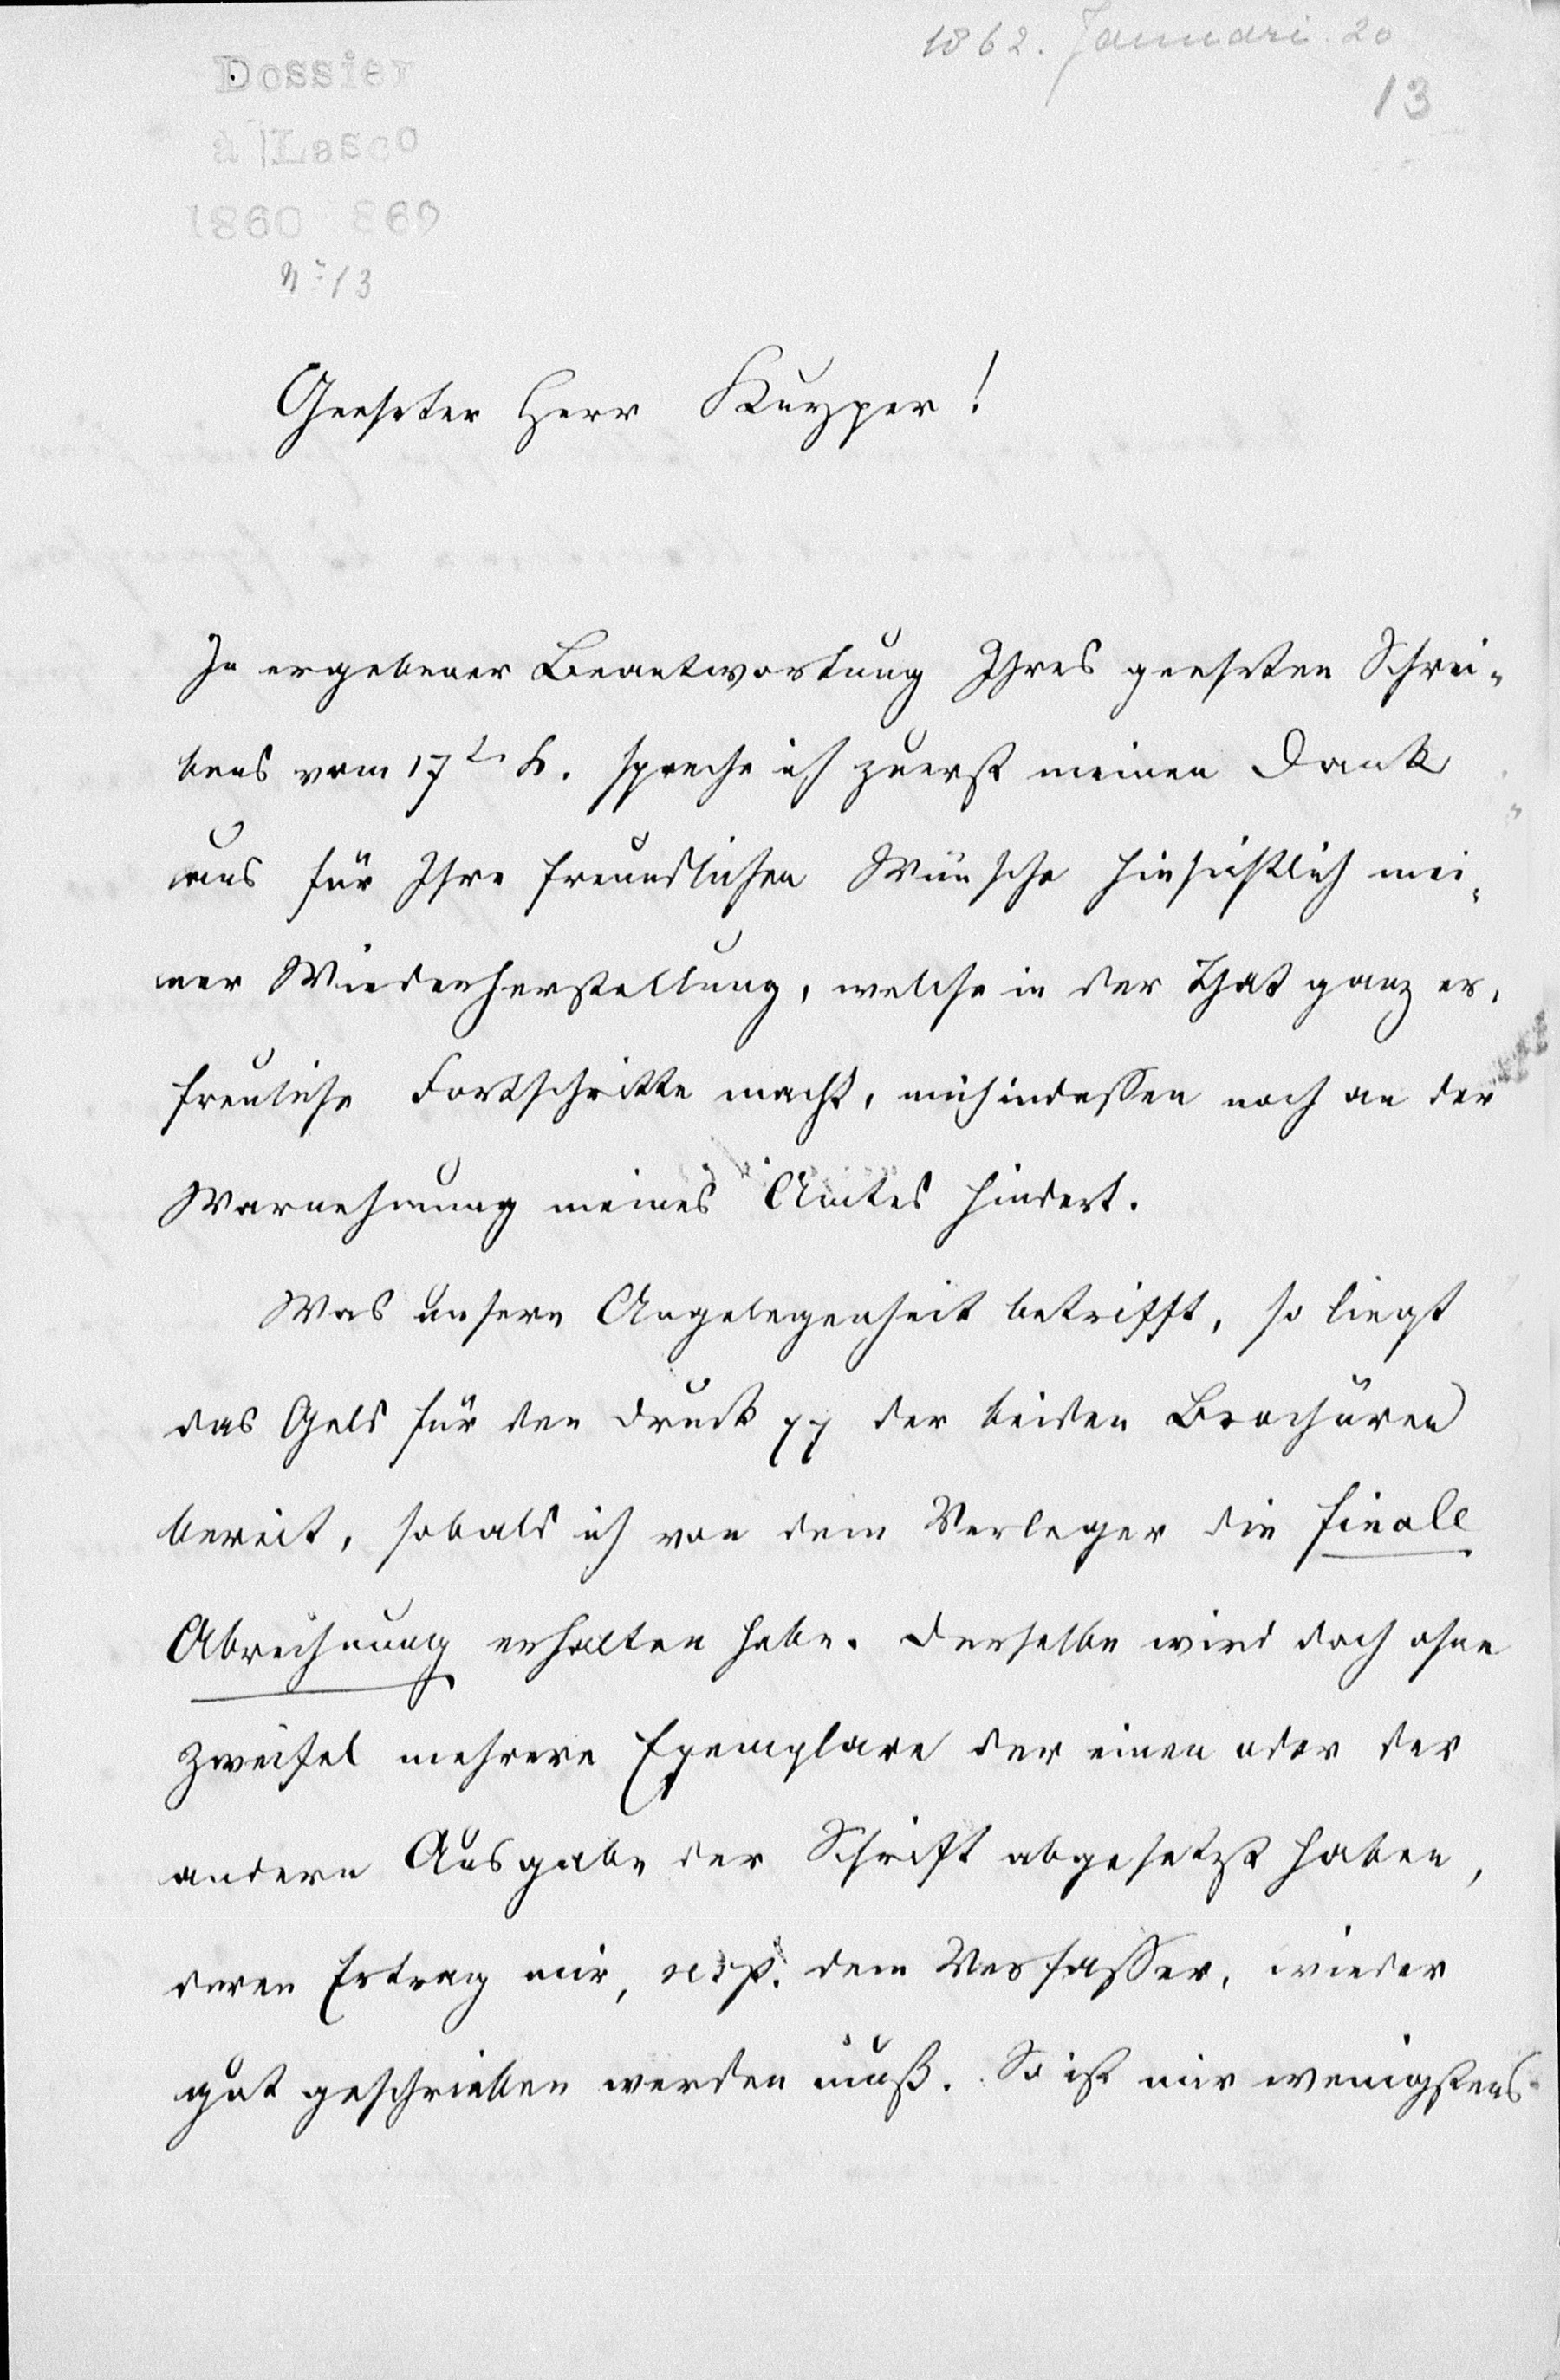 1862. Januari. 20
13
Dossier
à Lasco
1860 869
No 13
Geehrter Herr Kuyper!
In ergebener Beantwortung Ihres geehrten Schrei-
bens vom 17t. spreche ich zuerst meinen Dank
aus für Ihre freundlichen Wünsche hinsichtlich mei-
ner Wiederherstellung, welche in der That ganz er-
freuliche Fortschritte macht, mich indessen noch an der
Warnehmung meines Amtes hindert.
Was unsere Angelegenheit betrifft, so liegt
das Geld für den Druck pp der beiden Brochüren
bereit, sobald ich von dem Verleger die finale
Abrechnung erhalten habe. Derselbe wird doch ohne
Zweifel mehrere Exemplare der einen oder der
andern Ausgabe der Schrift abgesetzt haben,
deren Ertrag mir, resp. dem Verfasser, wieder
gut geschrieben werden muß. So ist mir wenigstens